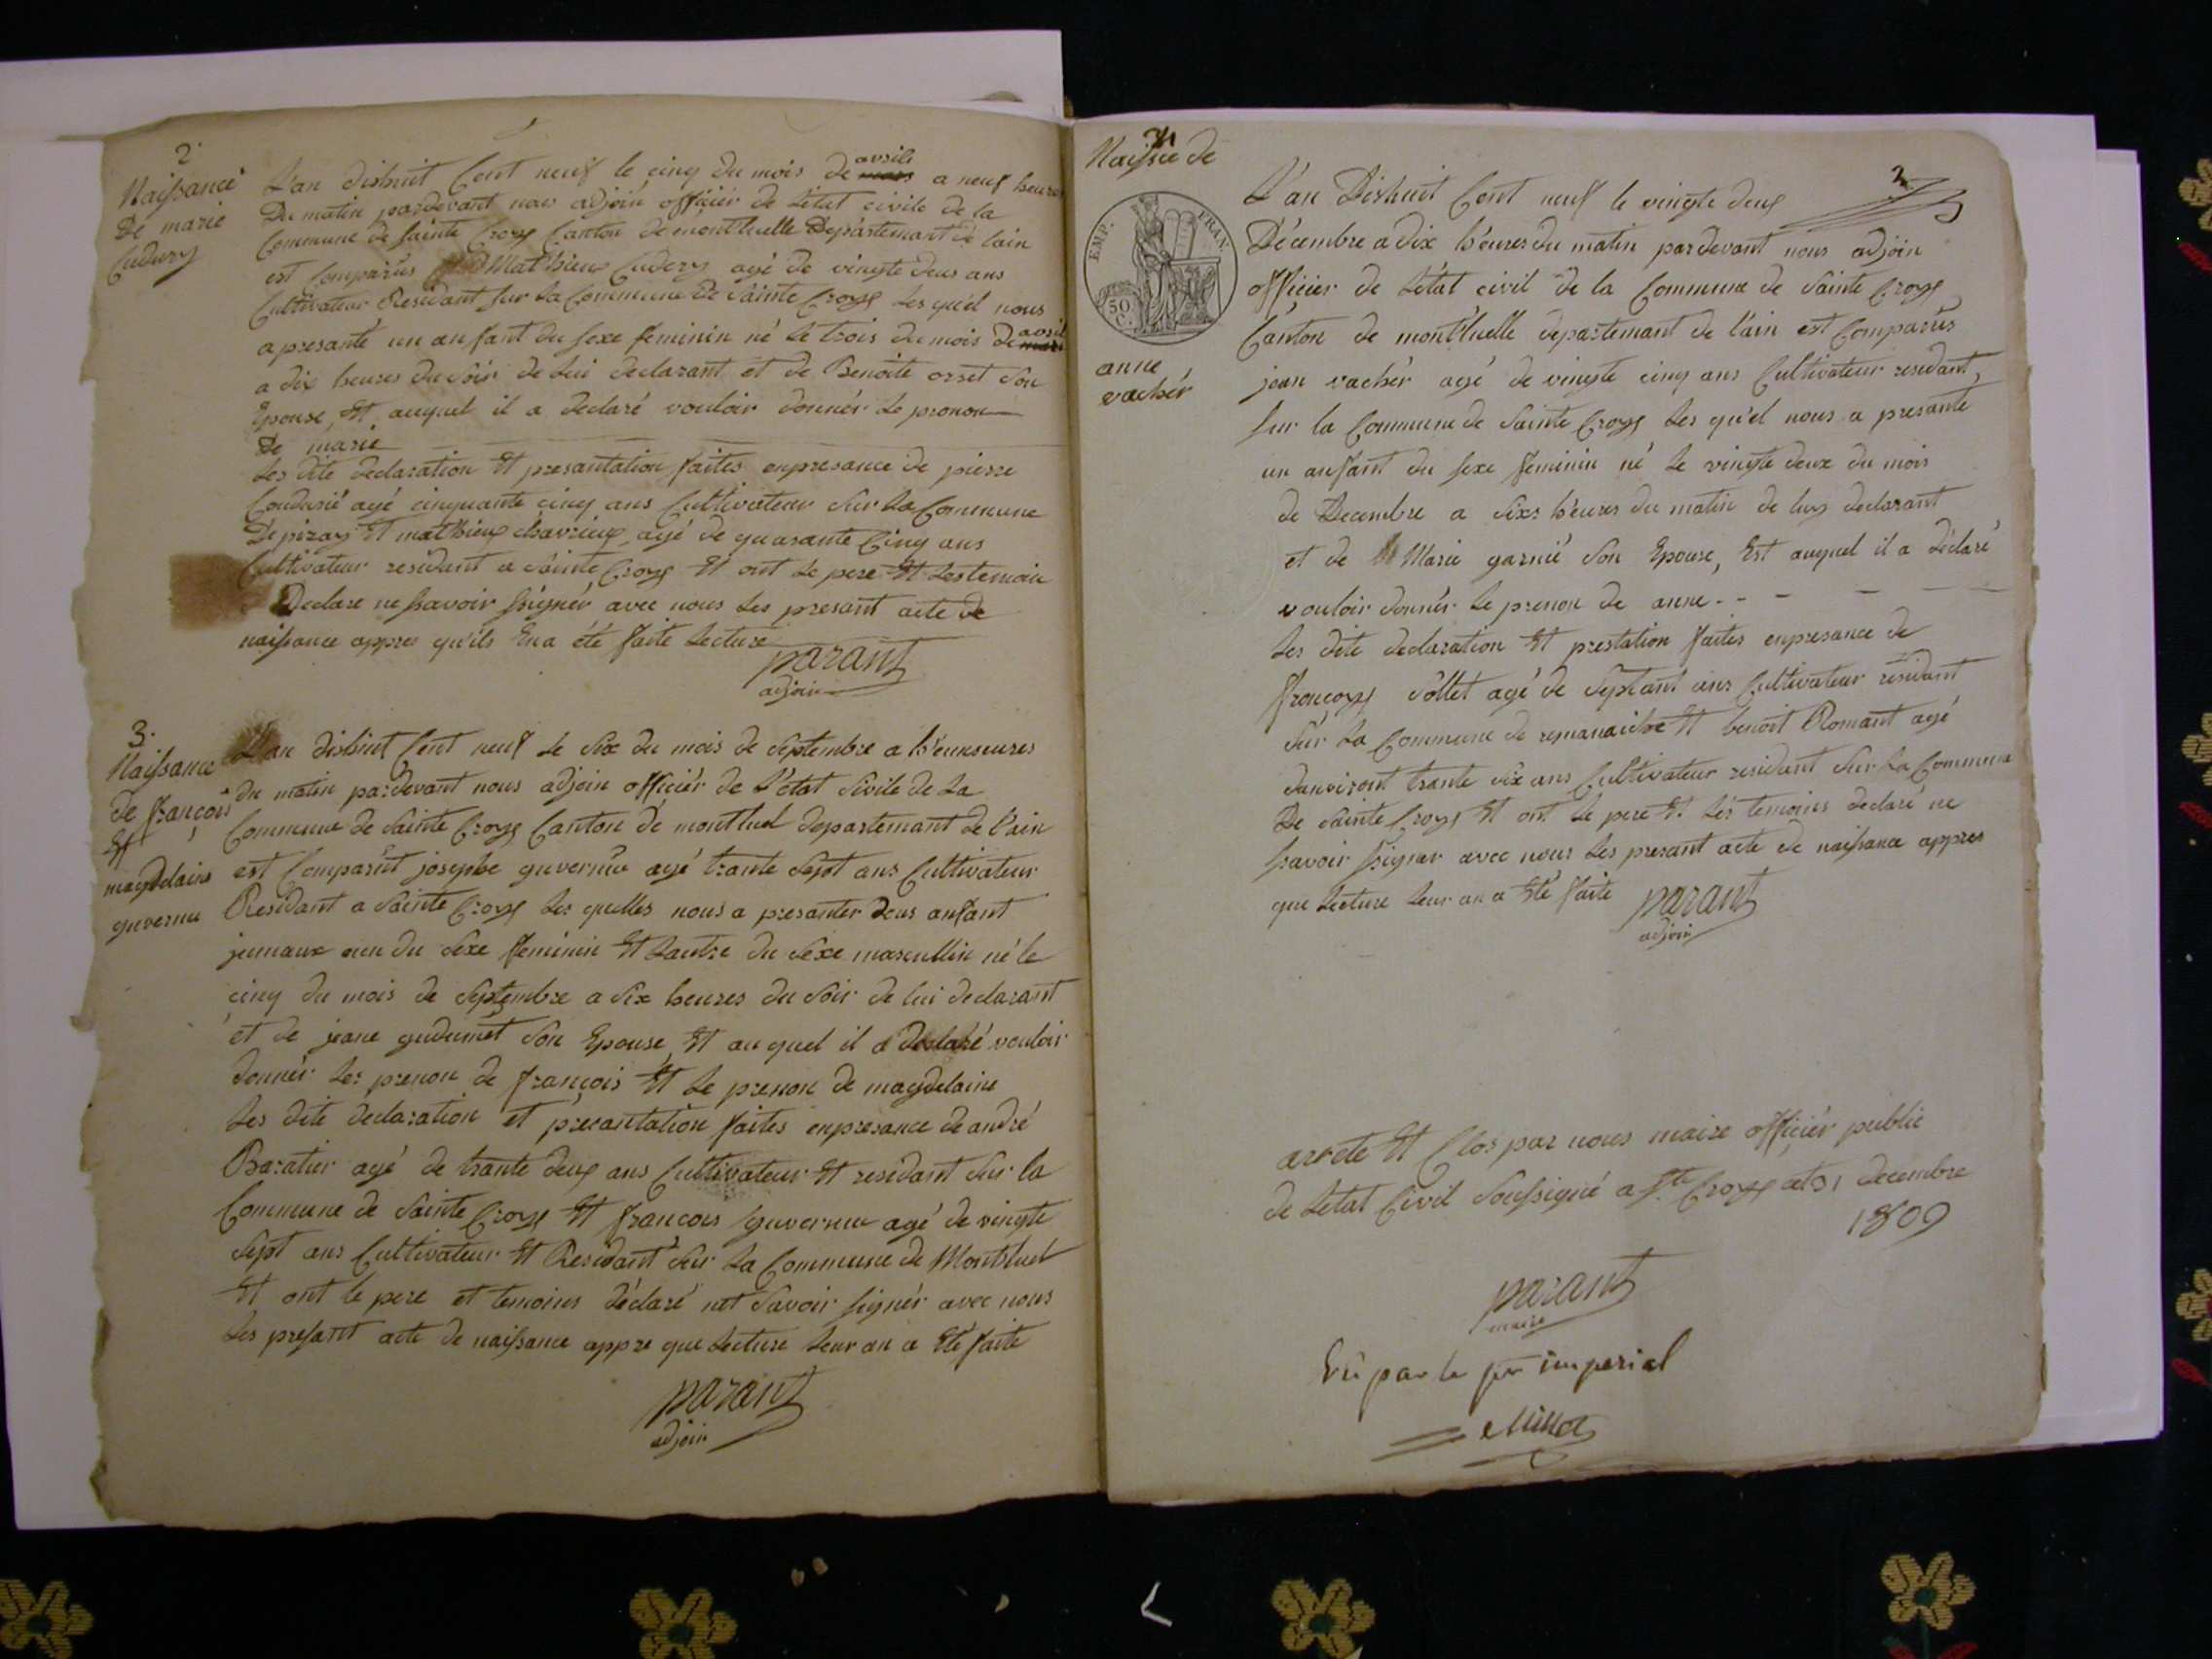 2.
Naissance
De marie
Cudury
L'an dishuit Cent neuf le cinq du mois de mars avrile a neuf heures
Du matin pardevant nous adjoin officier de L'etat civile de la
Commune de sainte Croye Canton de montluelle Departemant de lain
est Comparus Mathieux Cudery agé de vingte deus ans
Cultivateur Residant sur La Commune De Sainte Croye Les quel nous
a presanté un anfant du sexe feminin né Le trois du mois de mars avril
a dix heures du soir de Lui declarant et de Benoite orset son
Epouse, Et auquel il a declaré vouloir donnér Le pronon
De marie
Les dite declaration Et presantation faites enpresance de pierre
Coudurié agé cinquante cinq ans Cultivateur sur La Commune
De pizay Et mathieux chavrieux agé de quarante Cinq ans
Cultivateur residant a Sainte Croye Et ont Le pere Et Les temoin
Declare ne ssavoir ssignér avec nous Les presant acte de
naissance appres qu'ils En a été faite Lecture
parant
adjoin
3.
Naissance
de françois
Et
magdelaine
guvernu
L'an dishuit Cent neuf Le Six du mois de Septembre a
du matin pardevant nous adjoin officiér de L'état Sivile de La
Commune de Sainte Croye Canton de montluel departemant de l'ain
est Comparut josephe guvernu agé trante Sept ans Cultivateur
Residant a Sainte Croye Les quelles nous a presanter deus anfant
jumaux un du Sexe feminin Et Lautre du Sexe mascullin né le
cinq du mois de Septembre a Six heures du Soir de lui declarant
et de jeane gudumét Son Epouse, Et au quel il a declaré vouloir
donnér Les prenon de françois Et Le prenon de magdelaine
Les dite déclaration et présantation faites enpresance de andré
Baratier agé de trante deux ans Cultivateur Et residant Sur la
Commune de Sainte Croye Et francois guvernu agé de vingte
Sept ans Cultivateur Et Residant Sur La Commune de Montluel
Et ont le pere et temoins déclaré net Savoir signér avec nous
Les presant acte de naissance appre que Lecture Leur an a Eté faite
parant
adjoin
Naissce de
anne
vachér
EMP. FRAN.
50 C.
3
L'an Dishuit Cent neuf le vingte deux
Décembre a dix h'eures du matin pardevant nous adjoin
officier de L'état civil de la Commune de Sainte Croye
Canton de mont'luelle departemant de l'ain est Comparus
jean vachér agé de vingte cinq ans Cultivateur residant
sur la Commune de Sainte Croye Les qu'el nous a presanté
un anfant du sexe feminin né Le vingte deux du mois
de Decembre a Sixs h'eures du matin de luy declarant
et de Marie garnié Son Epouse, Est auquel il a déclaré
vouloir donnér Le prenon de anne - - - - -
Les dite declaration Et prestation faites enpresance de
françoye Sollet agé de Septant ans Cultivateur residant
Sur La Commune de romanaiche Et benoit Romant agé
danviront trante Six ans Cultivateur residant Sur La Commune
De Sainte Croye Et ont Le pere Et Lés temoins declaré ne
savoir ssigner avec nous Lés presant acte de naissance appres
que Lecture Leur an a Eté faite
parant
adjoin
arreté Et Clos par nous maire officiér public
de L'etat Civil Soussigné a Ste Croye le 31 decembre
1809
parant
maire
Vu par le pr imperial
Millet